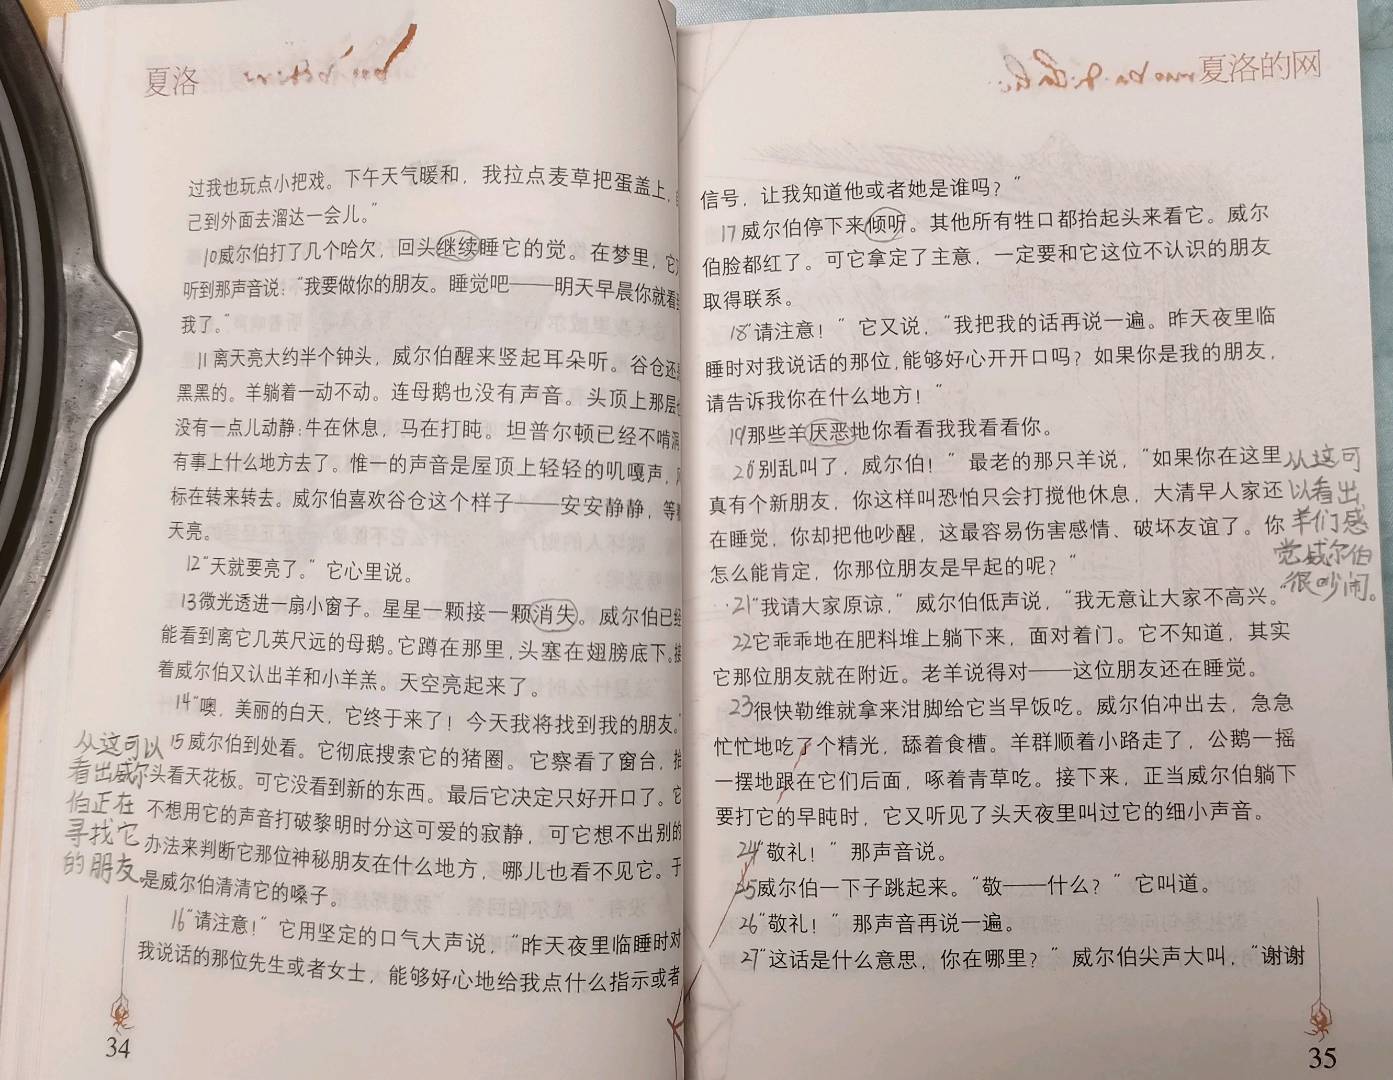 夏洛
过我也玩点小把戏。下午天气暖和，我拉点麦草把蛋盖上，
己到外面去溜达一会儿。”
10威尔伯打了几个哈欠，回头继续睡它的觉。在梦里，它
听到那声音说：“我要做你的朋友。睡觉吧——明天早晨你就看
我了。”
11离天亮大约半个钟头，威尔伯醒来竖起耳朵听。谷仓还
黑黑的。羊躺着一动不动。连母鹅也没有声音。头顶上那层
没有一点儿动静：牛在休息，马在打盹。坦普尔顿已经不啃
有事上什么地方去了。惟一的声音是屋顶上轻轻的叽嘎声，
标在转来转去。威尔伯喜欢谷仓这个样子——安安静静，等
天亮。
12“天就要亮了。”它心里说。
13微光透进一扇小窗子。星星一颗接一颗消失。威尔伯已经
能看到离它几英尺远的母鹅。它蹲在那里，头塞在翅膀底下。接
着威尔伯又认出羊和小羊羔。天空亮起来了。
14“噢，美丽的白天，它终于来了！今天我将找到我的朋友。”
15威尔伯到处看。它彻底搜索它的猪圈。它察看了窗台，抬
头看天花板。可它没看到新的东西。最后它决定只好开口了。它
不想用它的声音打破黎明时分这可爱的寂静，可它想不出别的
办法来判断它那位神秘朋友在什么地方，哪儿也看不见它。于
是威尔伯清清它的嗓子。
16“请注意！”它用坚定的口气大声说，“昨天夜里临睡时对
我说话的那位先生或者女士，能够好心地给我点什么指示或者
从这可以
看出威尔
伯正在
寻找它
的朋友。
34
夏洛的网
信号，让我知道他或者她是谁吗？”
17威尔伯停下来倾听。其他所有牲口都抬起头来看它。威尔
伯脸都红了。可它拿定了主意，一定要和它这位不认识的朋友
取得联系。
18“请注意！”它又说，“我把我的话再说一遍。昨天夜里临
睡时对我说话的那位，能够好心开开口吗？如果你是我的朋友，
请告诉我你在什么地方！”
19那些羊厌恶地你看看我我看看你。
20“别乱叫了，威尔伯！”最老的那只羊说，“如果你在这里
真有个新朋友，你这样叫恐怕只会打搅他休息，大清早人家还
在睡觉，你却把他吵醒，这最容易伤害感情、破坏友谊了。你
怎么能肯定，你那位朋友是早起的呢？”
21“我请大家原谅，”威尔伯低声说，“我无意让大家不高兴。”
22它乖乖地在肥料堆上躺下来，面对着门。它不知道，其实
它那位朋友就在附近。老羊说得对——这位朋友还在睡觉。
23很快勒维就拿来泔脚给它当早饭吃。威尔伯冲出去，急急
忙忙地吃了个精光，舔着食槽。羊群顺着小路走了，公鹅一摇
一摆地跟在它们后面，啄着青草吃。接下来，正当威尔伯躺下
要打它的早盹时，它又听见了头天夜里叫过它的细小声音。
24“敬礼！”那声音说。
25威尔伯一下子跳起来。“敬——什么？”它叫道。
26“敬礼！”那声音再说一遍。
27“这话是什么意思，你在哪里？”威尔伯尖声大叫，“谢谢
从这可
以看出
羊们感
觉威尔伯
很吵闹。
35